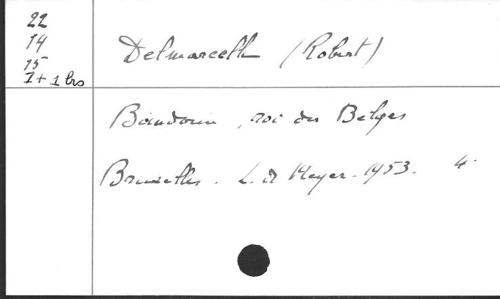 22
14
15
7 + 1 bis
Delmarcelle (Robert)
Baudouin, roi des Belges
Bruxelles. L. De Meyer. 1953. 4°